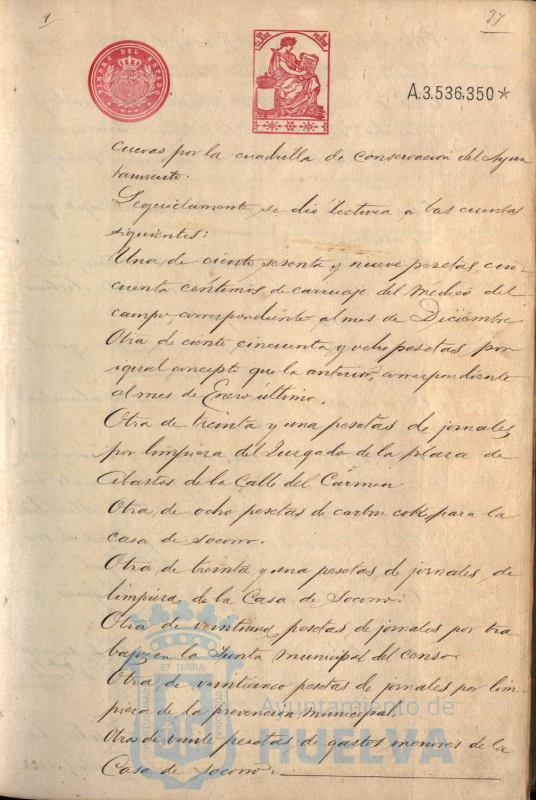 97
TIMBRE DEL ESTADO
A.3.536,350*
cuevas por la cuadrilla de conservacion del Ayun
tamiento.
Seguidamente se dio lectura a las cuentas
siguientes:
Una de ciento sesenta y nueve pesetas cin
cuenta céntimos de carruaje del Médico del
campo correspondiente al mes de Diciembre
Otra de ciento cincuenta y ocho pesetas por
igual concepto que la anterior, correspondiente
al mes de Enero último.
Otra de treinta y una pesetas de jornales
por limpieza del Juzgado de la plaza de
Abastos de la Calle del Cármen
Otra de ocho pesetas de carbon cok para la
casa de socorro.
Otra de treinta y una pesetas de jornales de
limpieza de la Casa de Socorro.
Otra de veintiuna pesetas de jornales por tra
bajos en la Junta municipal del censo
Otra de veinticinco pesetas de jornales por lim
pieza de la prevencion municipal.
Otra de veinte pesetas de gastos menores de la
Casa de Socorro.
Ayuntamiento de
HUELVA